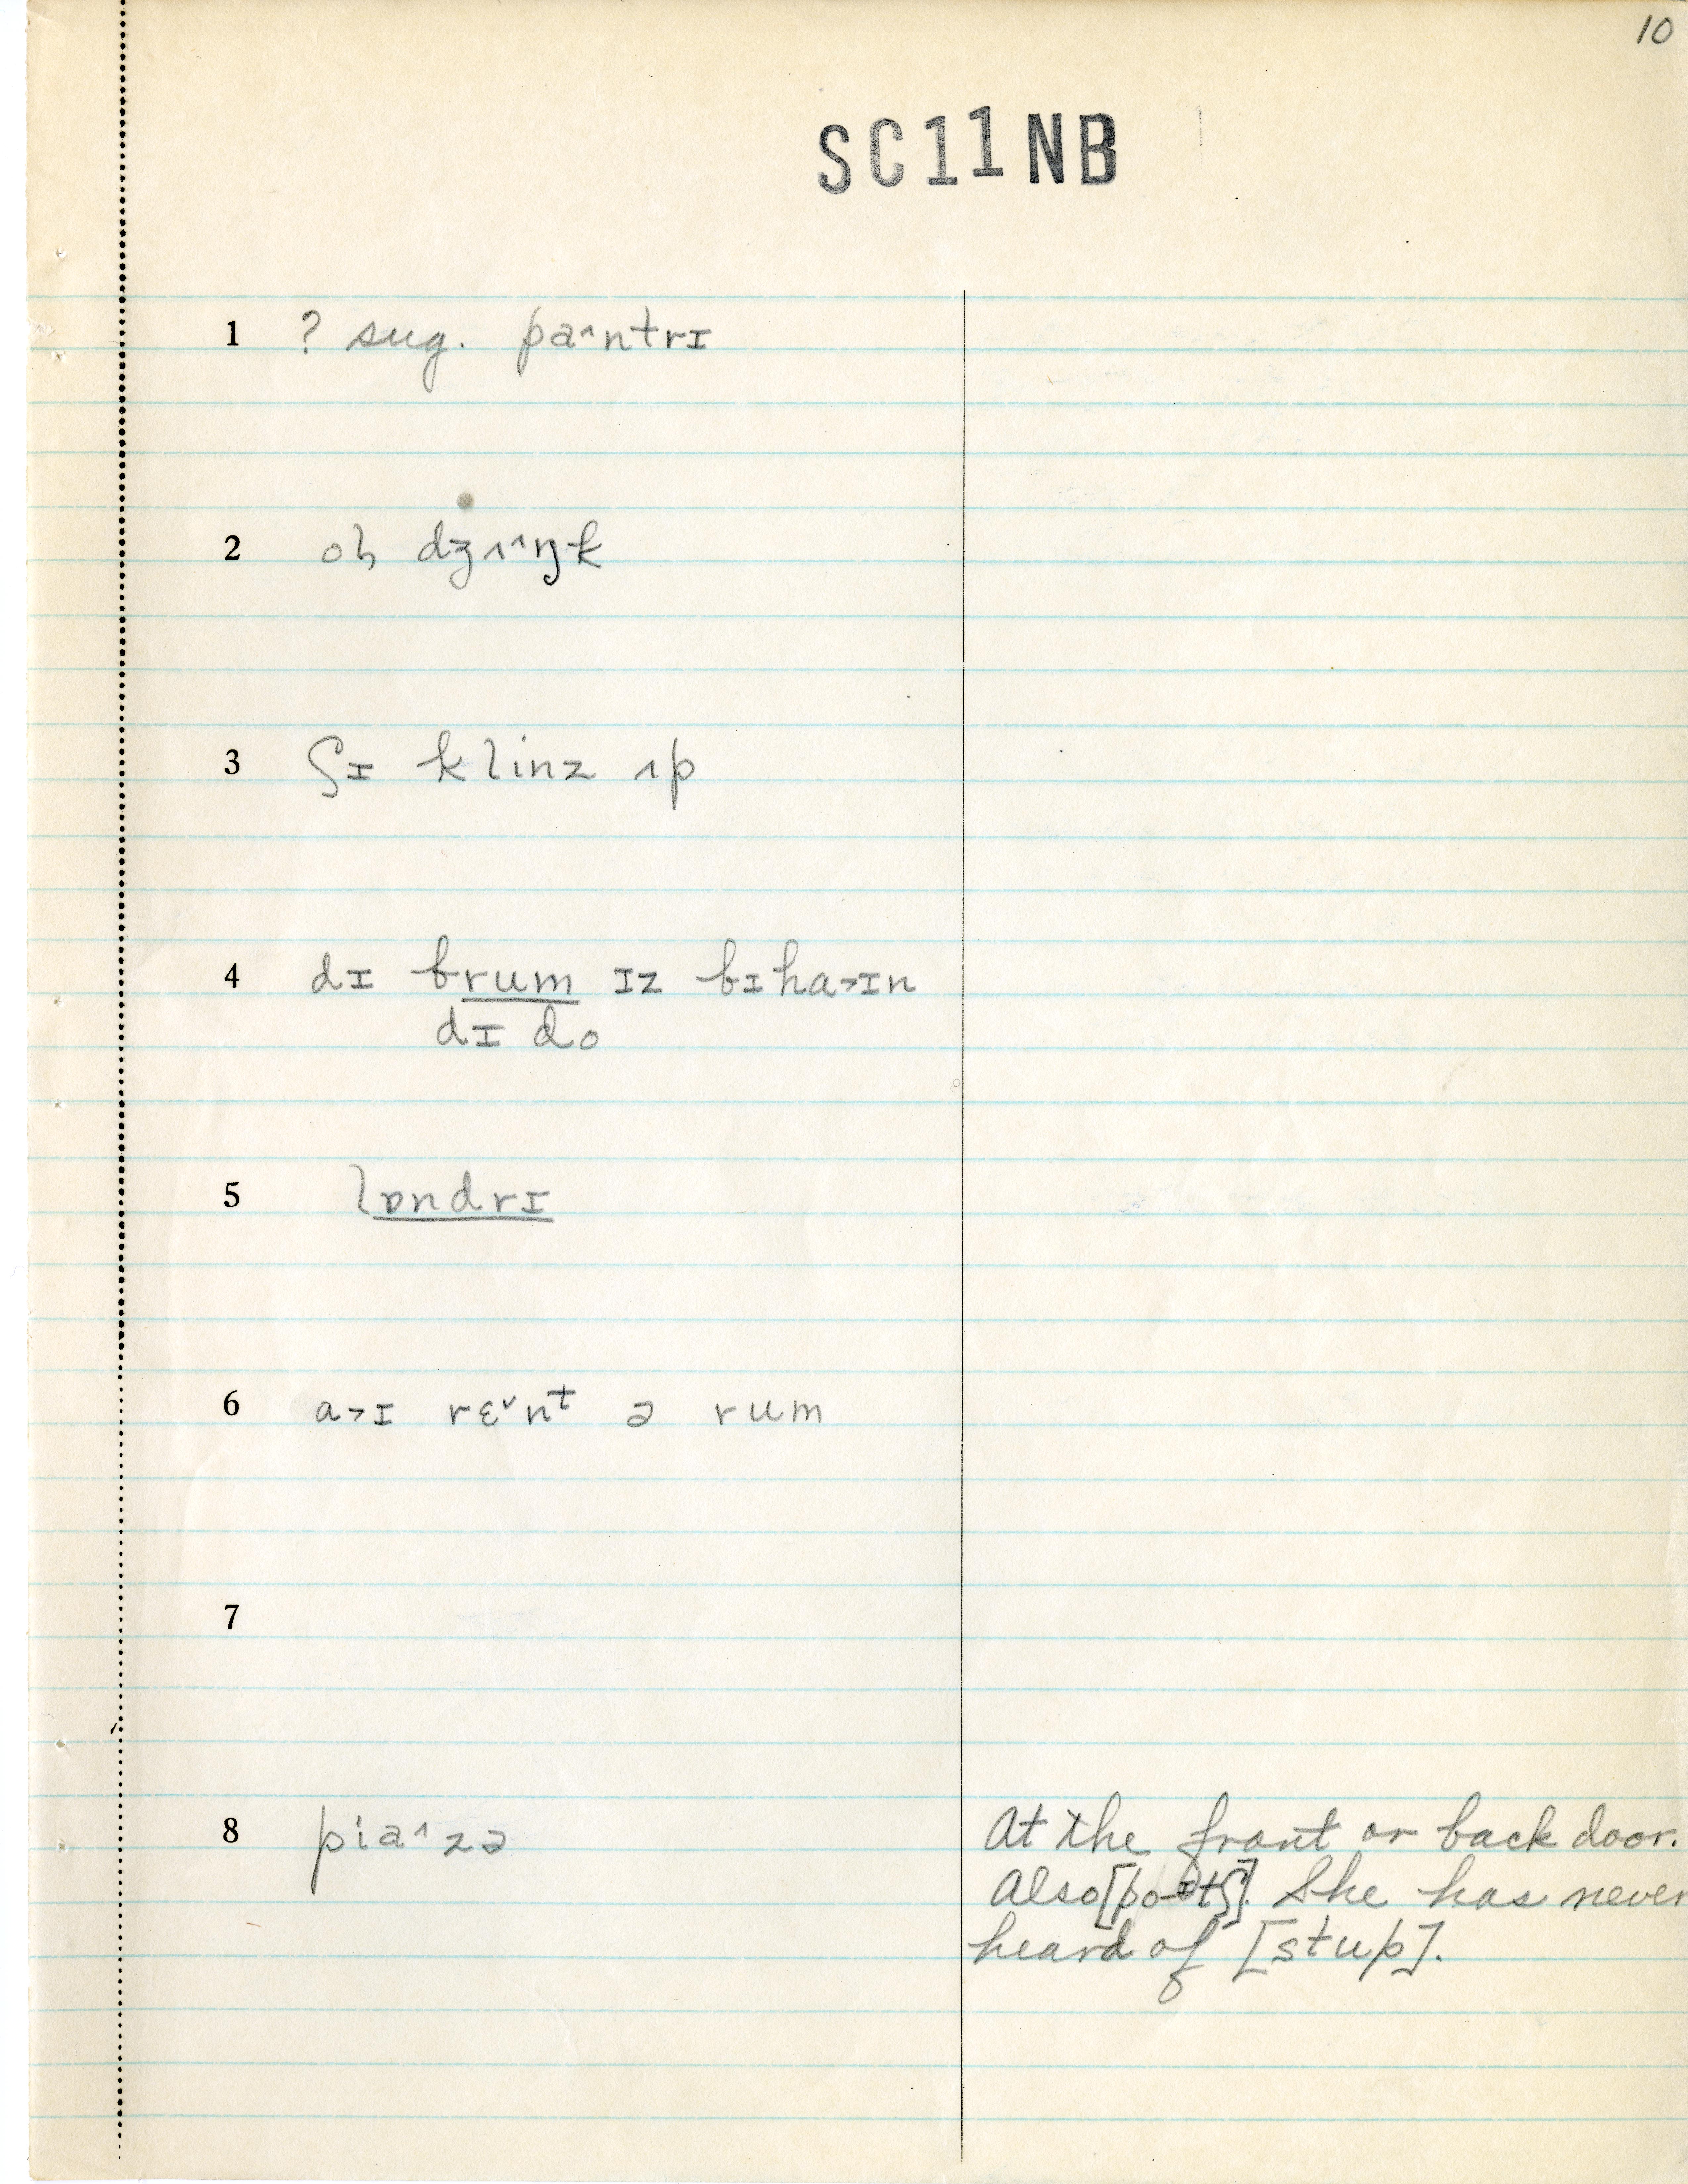 10
SC11NB
1 ? sug. pa^ntrɪ
2 oɫ dʒʌ^ŋk
3 ʃɪ klinz ʌp
4 dɪ brum ɪz bɪha˃ɪn
dɪ do
5 lɒndrɪ
6 a˃ɪ rɛ˅nᵗ ə rum
7
8 pia^zə At the front or back door.
Also [po-ɪtʃ]. She has never
heard of [stup].